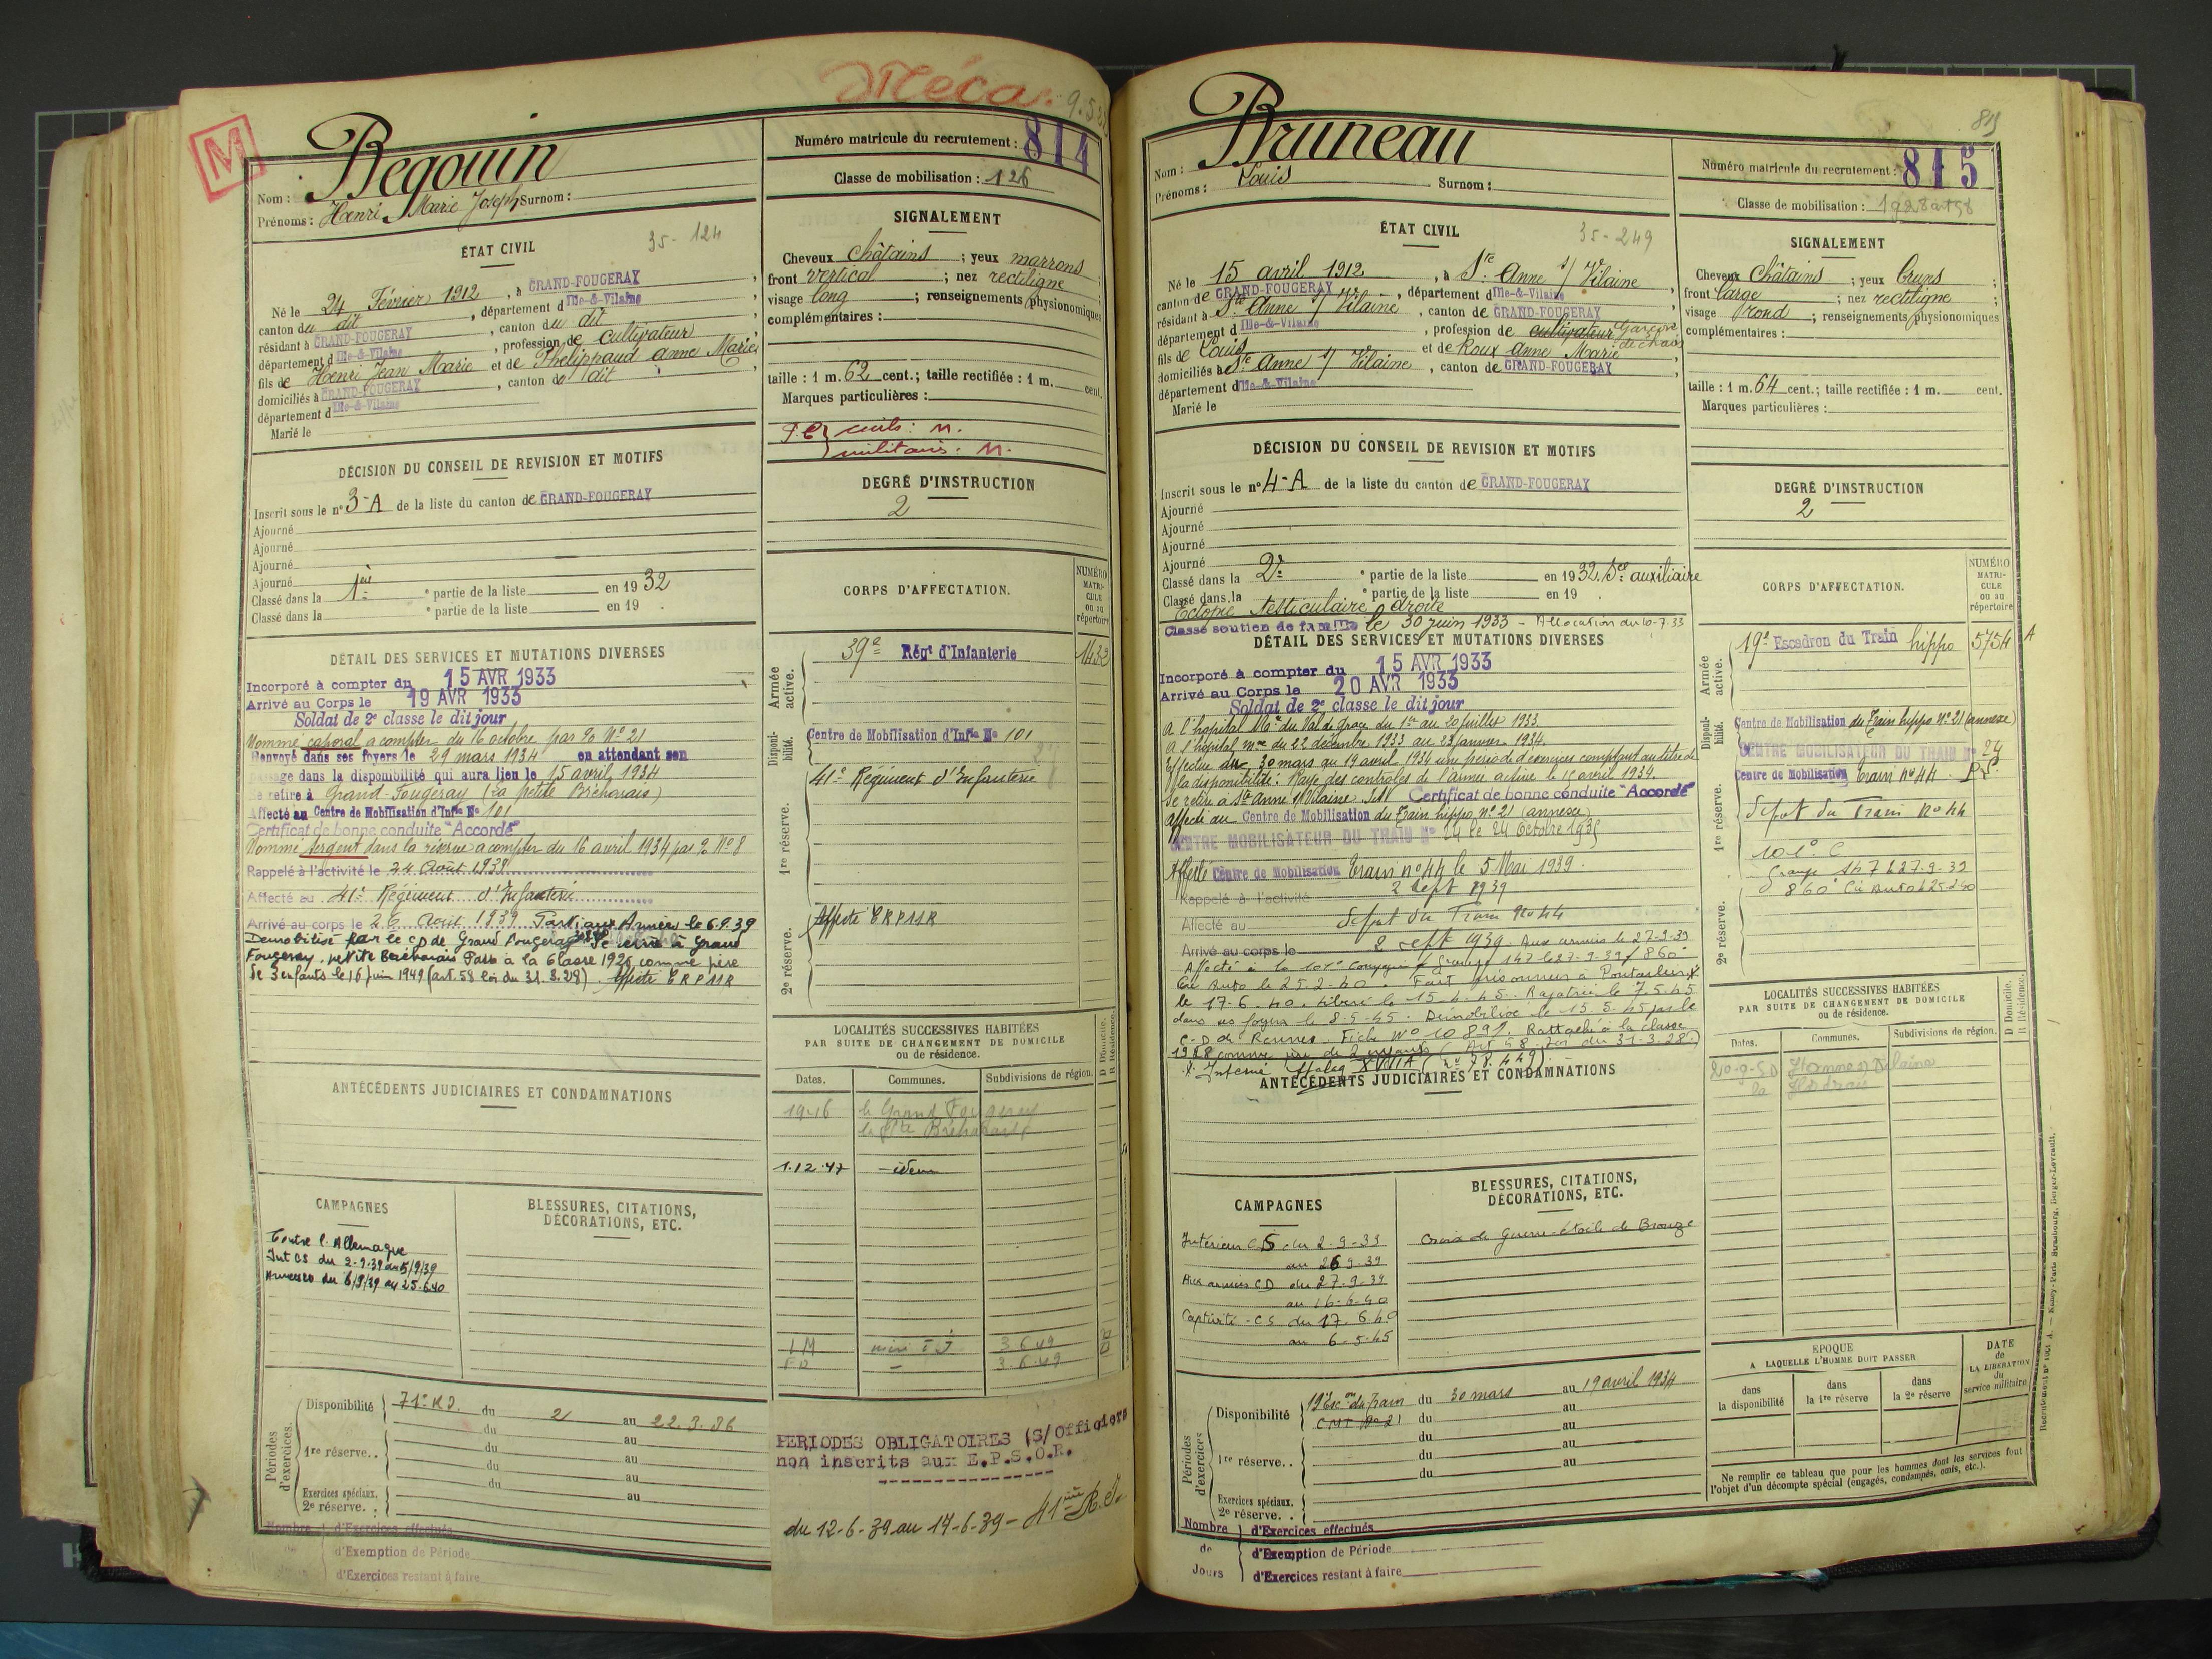 Méca.
9.5.
M
Nom : Begouin
Prénoms : Henri Marie Joseph Surnom :
Numéro matricule du recrutement : 814
Classe de mobilisation : 126
ÉTAT CIVIL
35-124
Né le 24 Février 1912, à GRAND-FOUGERAY,
canton du dit, département d Ille-&-Vilaine,
résidant à GRAND-FOUGERAY, canton du dit,
département d Ille-&-Vilaine, profession de cultivateur
fils de Henri Jean Marie et de Thelippaud Anne Marie
domiciliés à GRAND-FOUGERAY, canton du dit,
département d Ille-&-Vilaine
Marié le
SIGNALEMENT
Cheveux châtains ; yeux marrons
front vertical ; nez rectiligne ;
visage long ; renseignements physionomiques
complémentaires :
taille : 1 m. 62 cent.; taille rectifiée : 1 m. cent.
Marques particulières :
civils : n.
militaires : n.
DÉCISION DU CONSEIL DE REVISION ET MOTIFS
Inscrit sous le n° 3-A de la liste du canton de GRAND-FOUGERAY
Ajourné
Ajourné
Ajourné
Ajourné
Classé dans la 1ère partie de la liste en 1932
Classé dans la e partie de la liste en 19 .
DEGRÉ D'INSTRUCTION
2
DÉTAIL DES SERVICES ET MUTATIONS DIVERSES
Incorporé à compter du 15 AVR 1933
Arrivé au Corps le 19 AVR 1933
Soldat de 2e classe le dit jour
Nommé caporal a compter du 16 octobre par % N° 21
Renvoyé dans ses foyers le 29 mars 1934 en attendant son
passage dans la disponibilité qui aura lieu le 15 avril 1934
Se retire à Grand Fougeray (La petite Bréhorais)
Affecté au Centre de Mobilisation d'Infie No 101
Certificat de bonne conduite "Accordé"
Nommé sergent dans la réserve a compter du 16 avril 1934 par % N° 8
Rappelé à l'activité le 24 Août 1939
Affecté au 41e Régiment d'Infanterie
Arrivé au corps le 26 Août 1939 Parti aux Armées le 6.9.39
Démobilisé par le CD de Grand Fougeray Se retire à Grand
Fougeray. petite Bréhorais Passé à la Classe 1926 comme père
de 3 enfants le 16 juin 1949 (art. 58 loi du 31.3.28). Affecté CRP11R
CORPS D'AFFECTATION.
NUMÉRO MATRICULE ou au répertoire
Armée active.
39e Régt d'Infanterie 1432
Disponibilité.
Centre de Mobilisation d'Infie No 101
41e Régiment d'Infanterie
1re réserve.
2e réserve.
Affecté CRP11R
ANTÉCÉDENTS JUDICIAIRES ET CONDAMNATIONS
LOCALITÉS SUCCESSIVES HABITÉES
PAR SUITE DE CHANGEMENT DE DOMICILE
ou de résidence.
D Domicile. R Résidence.
Dates. Communes. Subdivisions de région.
1946 le Grand Fougeray
la Pte Bréhorais
1.12.47 - idem
3.6.49
3.6.49
CAMPAGNES
Contre l'Allemagne
Int CS du 2-9-39 au 5/9/39
Armées du 6/9/39 au 25.6.40
BLESSURES, CITATIONS,
DÉCORATIONS, ETC.
Périodes d'exercices.
Disponibilité 71e R.I. du 2 au 22.3.36
du au
1re réserve.. du au
du au
du au
Exercices spéciaux.
2e réserve. . au
Nombre de Jours
d'Exercices effectués
d'Exemption de Période
d'Exercices restant à faire
PERIODES OBLIGATOIRES (S/Officiers
non inscrits aux E.P.S.O.R.
du 12-6-39 au 17-6-39 - 41ème R.I.
815
Nom : Bruneau
Prénoms : Louis Surnom :
Numéro matricule du recrutement : 815
Classe de mobilisation : 1928
ÉTAT CIVIL
35-249
Né le 15 avril 1912, à Ste Anne s/ Vilaine
canton de GRAND-FOUGERAY, département d Ille-&-Vilaine
résidant à Ste Anne s/ Vilaine, canton de GRAND-FOUGERAY
département d Ille-&-Vilaine, profession de cultivateur
fils de Louis et de Roux Anne Marie
domiciliés à Ste Anne s/ Vilaine, canton de GRAND-FOUGERAY
département d Ille-&-Vilaine
Marié le
SIGNALEMENT
Cheveux châtains ; yeux bruns
front large ; nez rectiligne ;
visage rond ; renseignements physionomiques
complémentaires :
taille : 1 m. 64 cent.; taille rectifiée : 1 m. cent.
Marques particulières :
DÉCISION DU CONSEIL DE REVISION ET MOTIFS
Inscrit sous le n° 4-A de la liste du canton de GRAND-FOUGERAY
Ajourné
Ajourné
Ajourné
Ajourné
Classé dans la 2e partie de la liste en 1932. Sce auxiliaire
Classé dans la e partie de la liste en 19 .
Ectopie testiculaire droite
Classé soutien de famille le 30 juin 1933 - Allocation du 10-7-33
DEGRÉ D'INSTRUCTION
2
DÉTAIL DES SERVICES ET MUTATIONS DIVERSES
Incorporé à compter du 15 AVR 1933
Arrivé au Corps le 20 AVR 1933
Soldat de 2e classe le dit jour
A l'hôpital Mre du Val de Grace du 1er au 20 juillet 1933.
A l'hôpital mre du 22 décembre 1933 au 23 janvier 1934.
Effectue du 30 mars au 19 avril 1934 une période d'exercices comptant au titre de
la disponibilité. Rayé des contrôles de l'armée active le 15 avril 1934.
Se retire à Ste Anne s/ Vilaine I&V Certificat de bonne conduite "Accordé"
Affecté au Centre de Mobilisation du Train hippo n° 21 (annexe)
CENTRE MOBILISATEUR DU TRAIN N° 24 le 24 Octobre 1935
Affecté Centre de Mobilisation Train n° 44 le 5 Mai 1939.
Rappelé à l'activité 2 Sept 1939
Affecté au Dépôt du Train N° 44
Arrivé au corps le 2 sept 1939. Aux armées le 27-9-39
Affecté à la 101e Compagnie Groupe 147 le 27-9-39 / 860e
Cie Auto le 25-2-40. Fait prisonnier à Pontarlier x
le 17-6-40. Libéré le 15-4-45. Rapatrié le 7-5-45
dans ses foyers le 8-5-45. Démobilisé le 15-5-45 par le
C-D de Rennes. Fiche N° 10891. Rattaché à la classe
1928 comme père de 2 enfants (Art 58. Loi du 31-3-28.)
x Interné Stalag XVIIA (n° 78.449).
CORPS D'AFFECTATION.
NUMÉRO MATRICULE ou au répertoire
Armée active.
19e Escadron du Train hippo 5754 A
Disponibilité.
Centre de Mobilisation du Train hippo n° 21 (annexe)
CENTRE MOBILISATEUR DU TRAIN N° 24
Centre de Mobilisation Train n° 44
1re réserve.
Dépôt du Train N° 44
101e C
Groupe 147 le 27-9-39
860e Cie Auto le 25-2-40
2e réserve.
ANTÉCÉDENTS JUDICIAIRES ET CONDAMNATIONS
LOCALITÉS SUCCESSIVES HABITÉES
PAR SUITE DE CHANGEMENT DE DOMICILE
ou de résidence.
D Domicile. R Résidence.
Dates. Communes. Subdivisions de région.
20-9-50
CAMPAGNES
Intérieur CS du 2-9-39
au 26 9.39
Aux armées CD du 27.9.39
au 16-6-40
Captivité - CS du 17.6.40
au 6-5-45
BLESSURES, CITATIONS,
DÉCORATIONS, ETC.
Croix de Guerre étoile de Bronze
EPOQUE
A LAQUELLE L'HOMME DOIT PASSER
dans la disponibilité
dans la 1re réserve
dans la 2e réserve
DATE de LA LIBÉRATION du service militaire
Ne remplir ce tableau que pour les hommes dont les services font
l'objet d'un décompte spécial (engagés, condamnés, omis, etc.).
Périodes d'exercices
Disponibilité 19e Esc on du Train du 30 mars au 19 avril 1934
C M T N° 21 du au
du au
1re réserve.. du au
du au
Exercices spéciaux.
2e réserve. .
Nombre de Jours
d'Exercices effectués
d'Exemption de Période
d'Exercices restant à faire